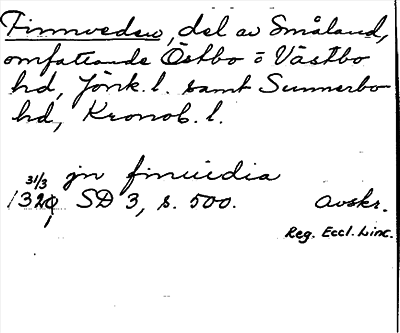 Finnveden, del av Småland,
omfattande Östbo o Västbo
hd, Jönk. l. samt Sunnerbo
hd, Kronob. l.
31/3 jn finuidia
1320 SD 3, s. 500. Avskr.
Reg. Eccl. Linc.